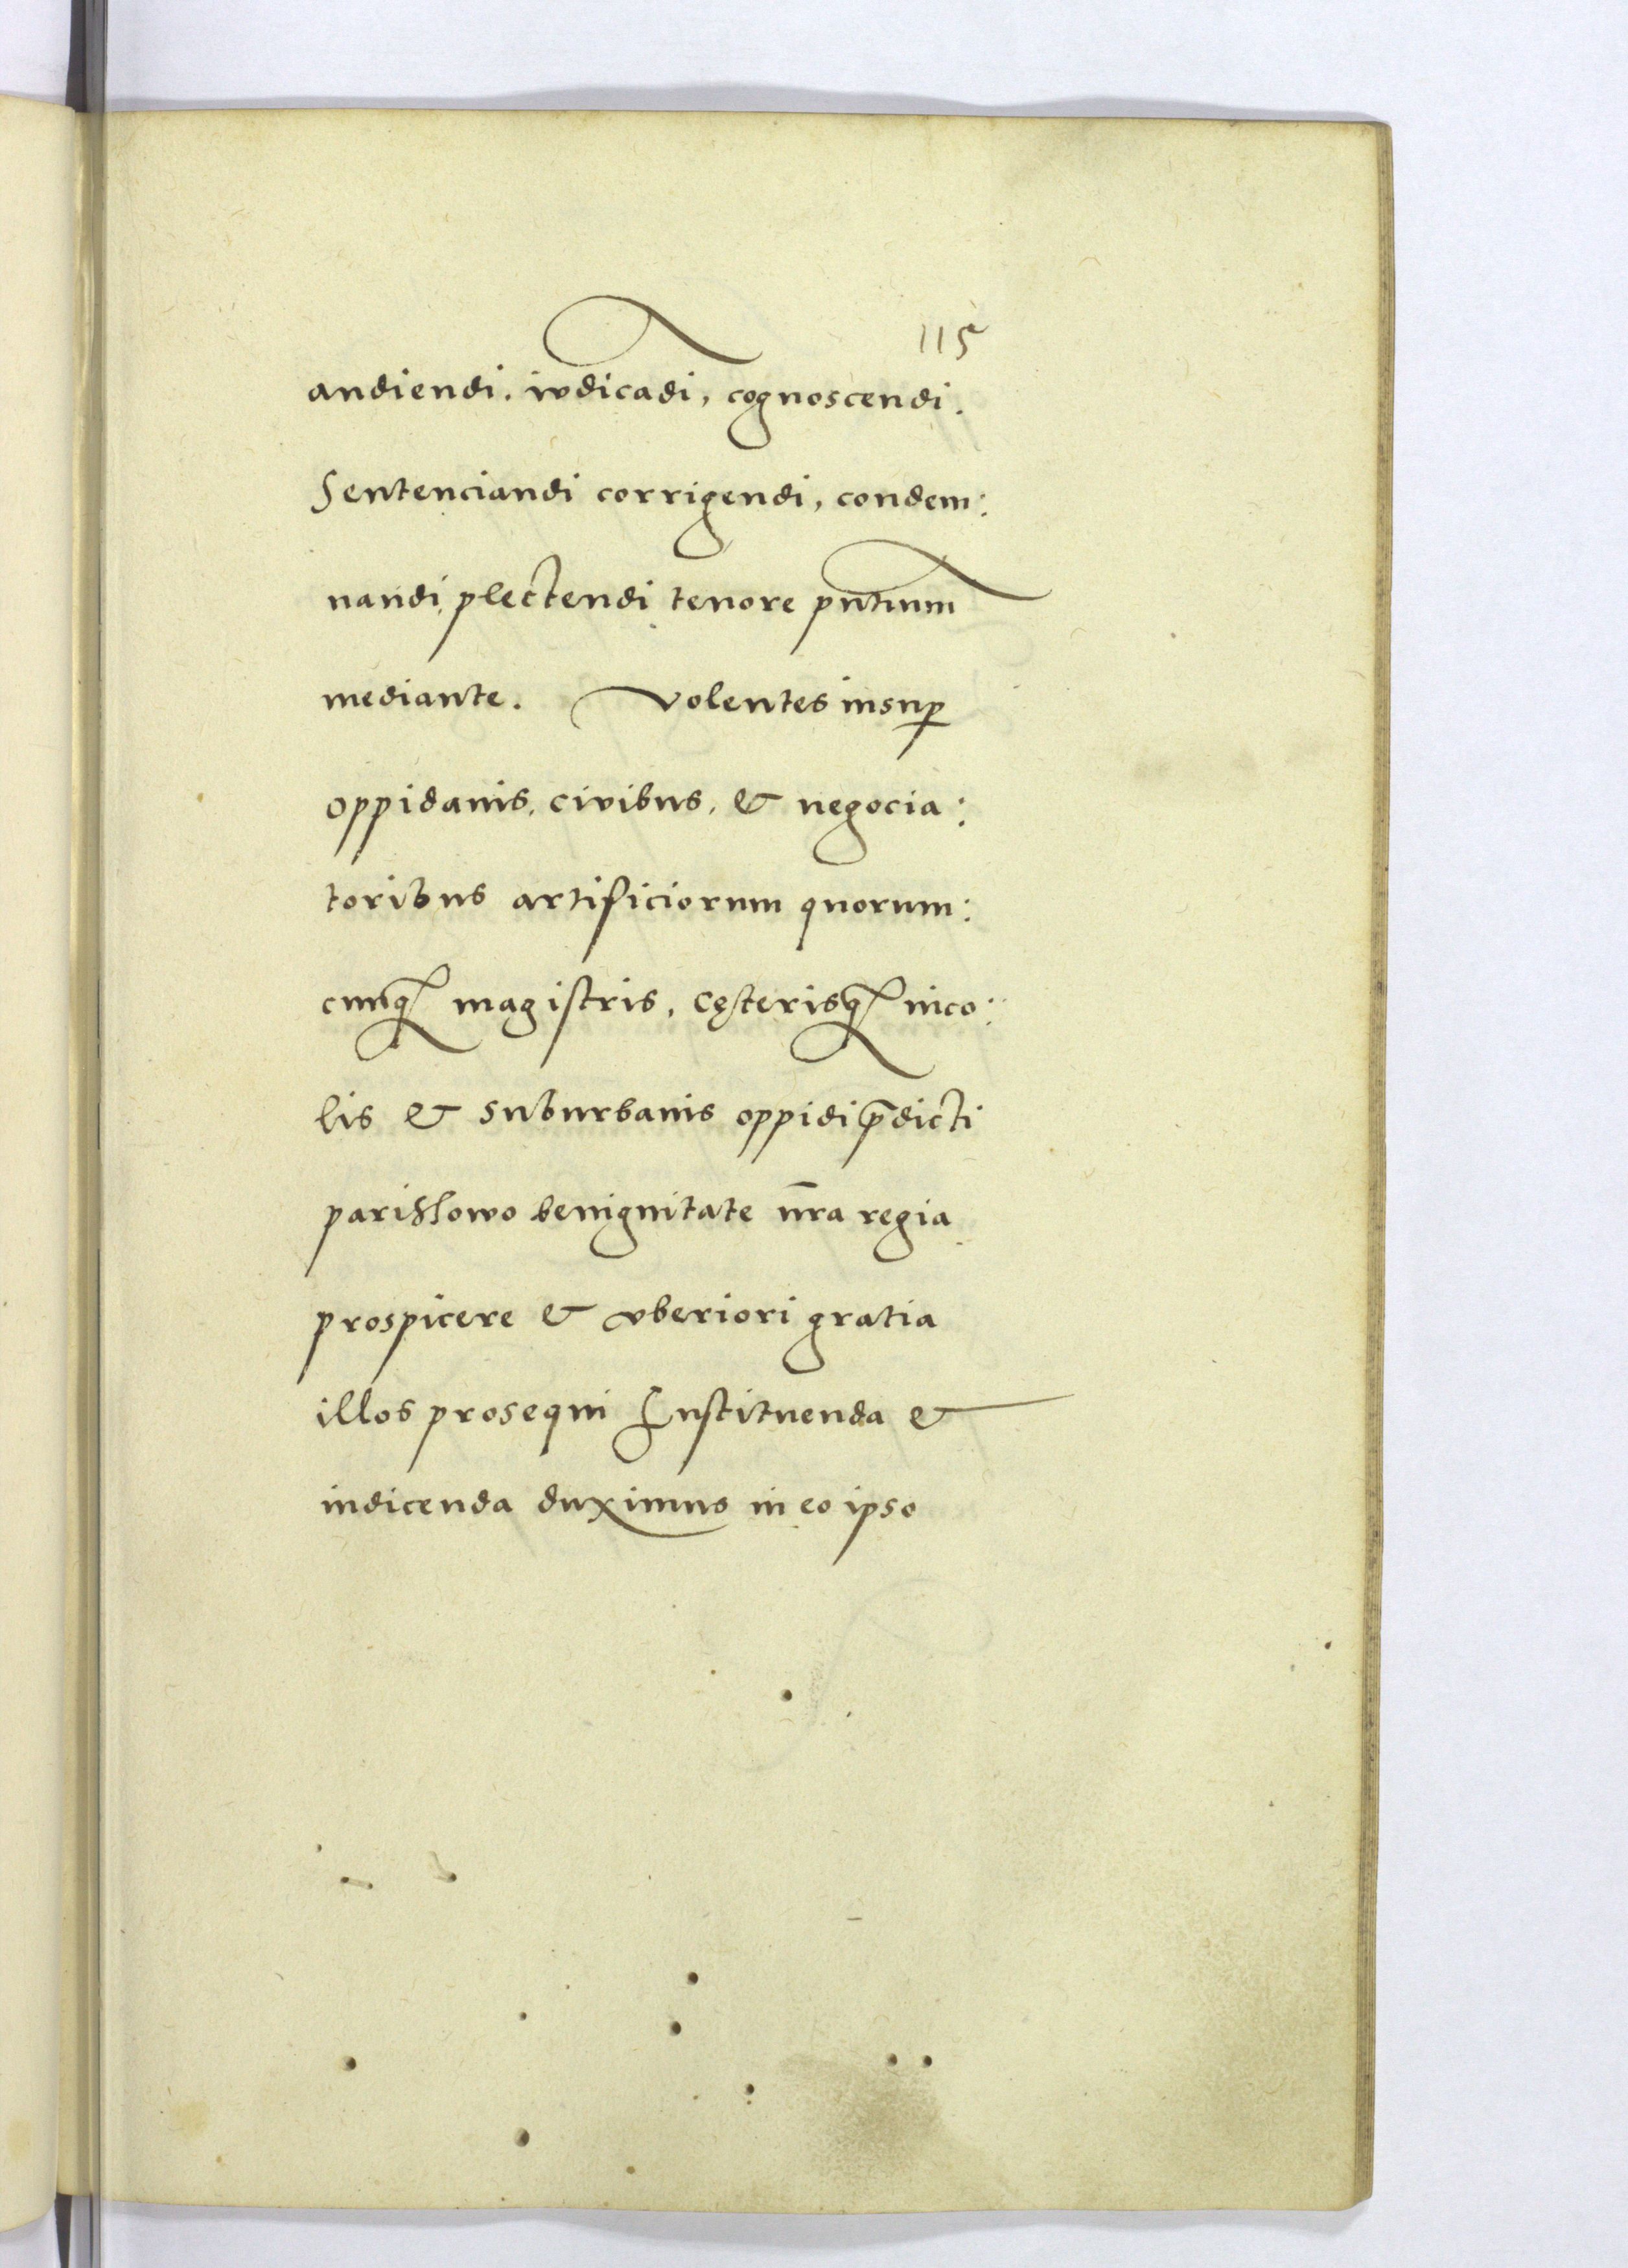 115
audiendi. iudicādi, cognoscendi.
Sentenciandi corrigendi, condem:
nandi, plectendi tenore pñtium
mediante. Volentes insuꝑ
oppidanis, civibus, & negocia:
toribus artificiorum quorum:
cunqꝫ magistris, cęterisqꝫ inco:
lis & suburbanis oppidi p̄dicti
parissowo benignitate nr̄a regia
prospicere & vberiori gratia
illos prosequi Instituenda &
indicenda duximus in eo ipso